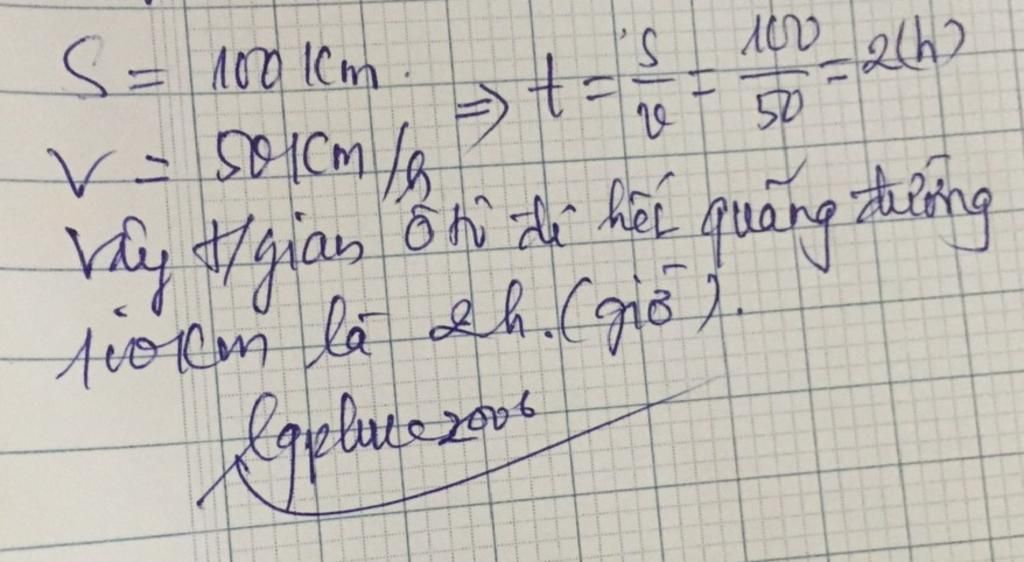 S = 100 Km. => t = S/v = 100/50 = 2(h)
V = 50 Km/h
Vậy t/gian Ô tô đi hết quãng đường
100Km là 2h. (giờ).
lgphuc2006